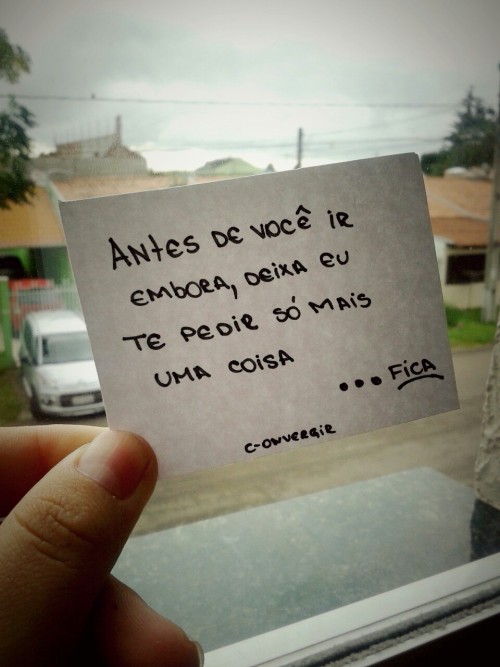 ANTES DE VOCÊ IR
EMBORA, DEIXA EU
TE PEDIR SÓ MAIS
UMA COISA
... FICA
C-ONVERGIR